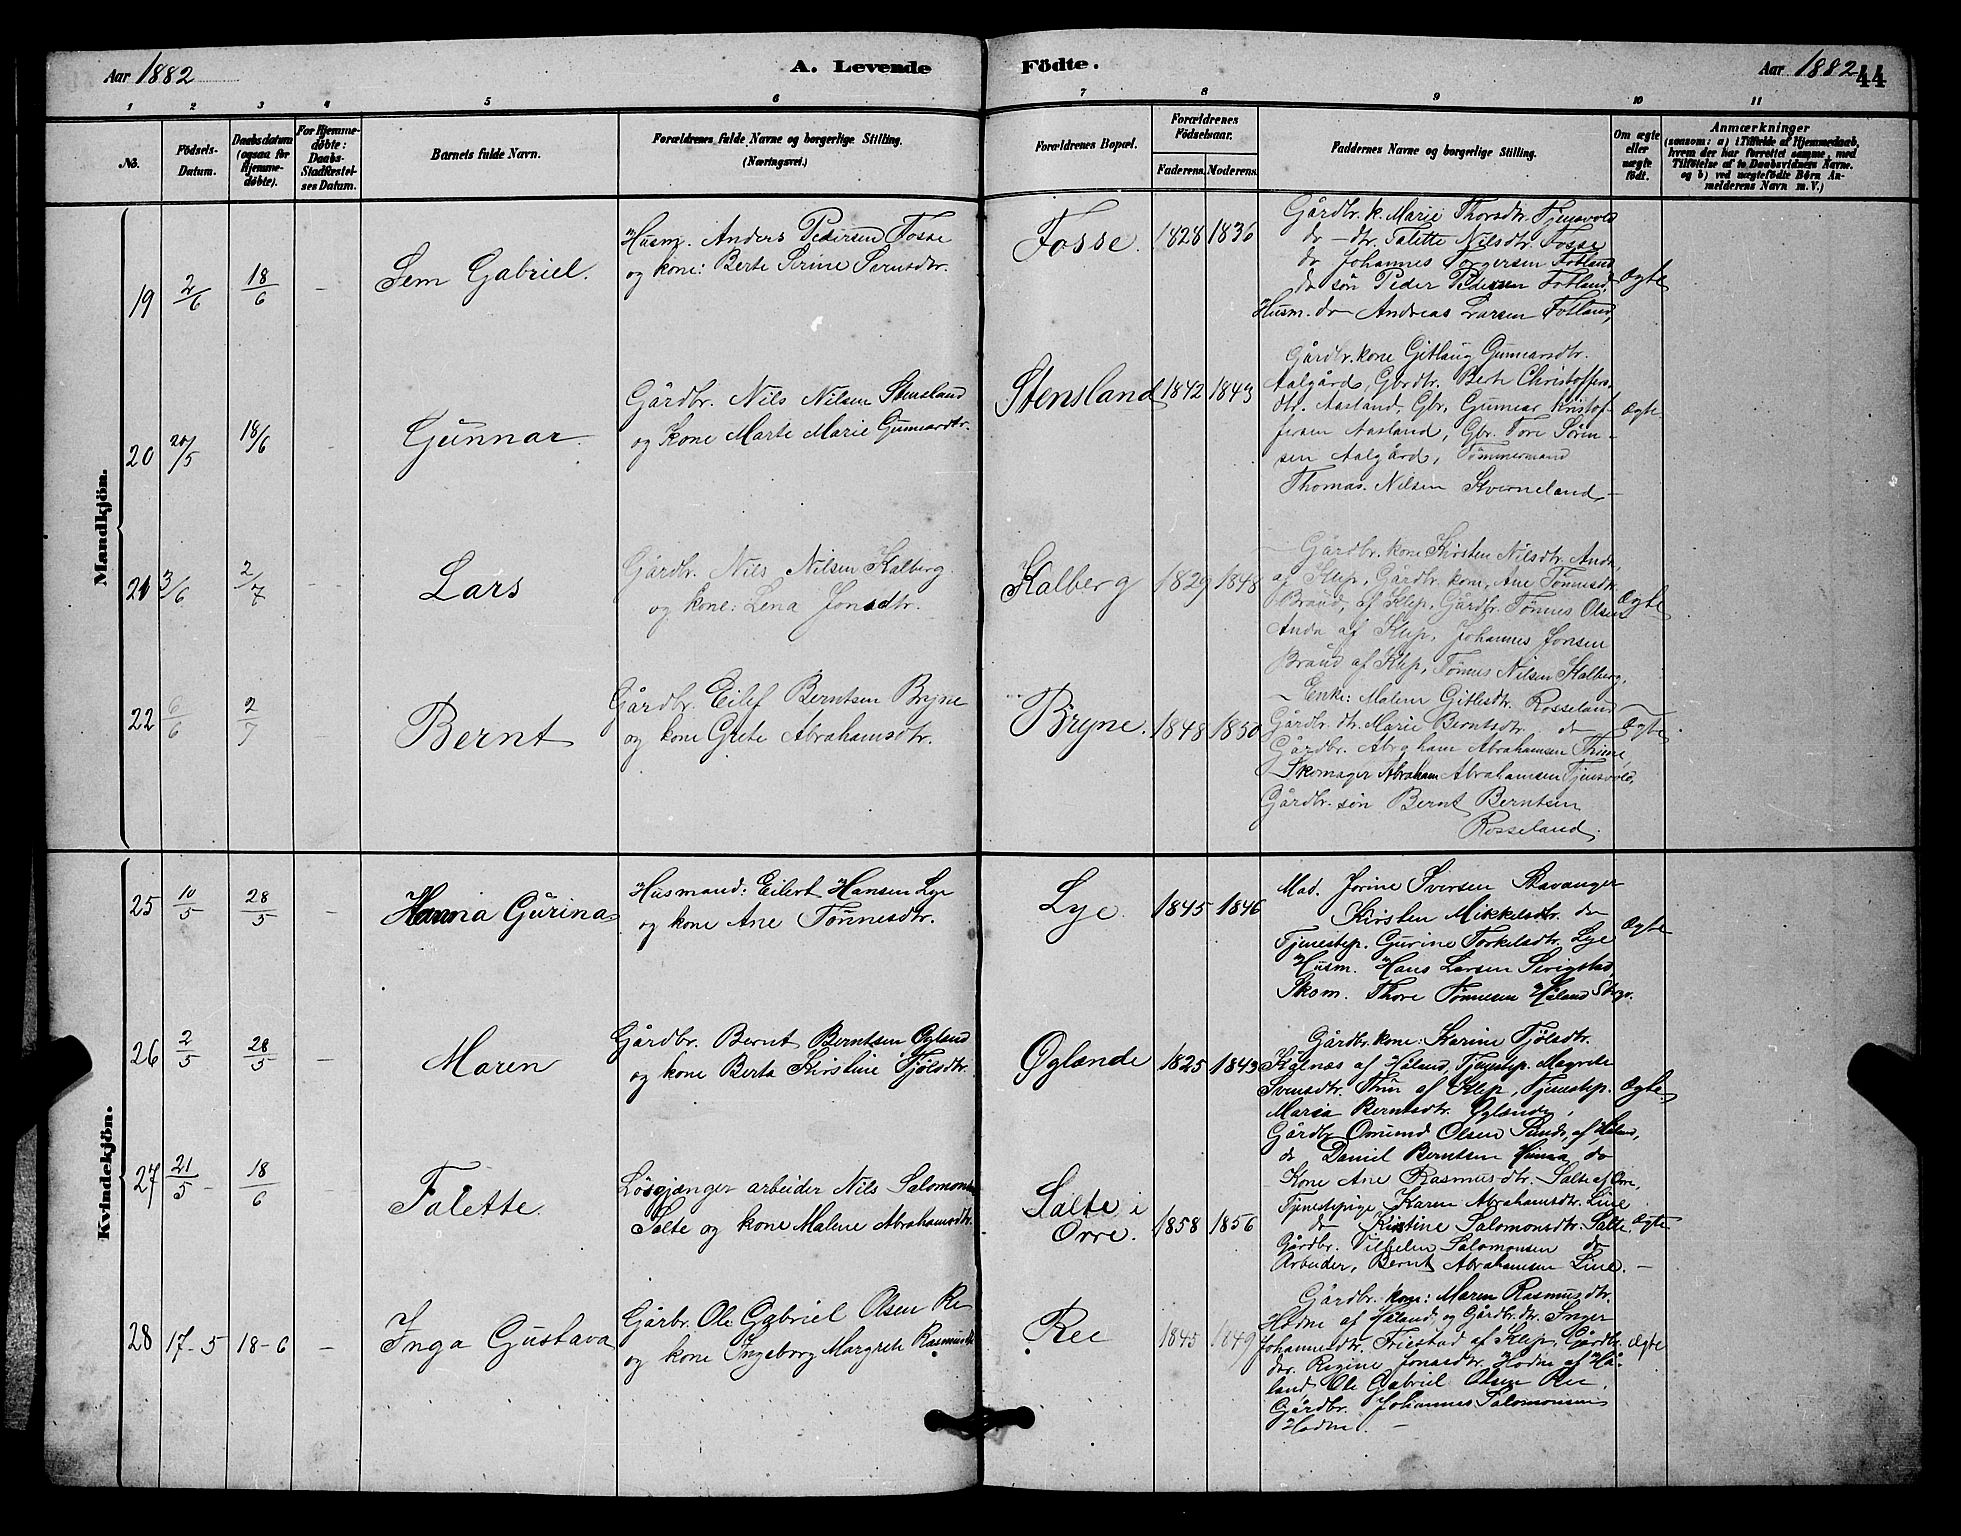 Aar 1882
A. Levende
Födte.
Aar 1882
44
1 2 3 4 5 6 7 8 9 10 11
No.
Födsels-
Datum.
Daabsdatum
(ogsaa for
Hjemme-
döbte).
For Hjemme-
döbte:
Daabs-
Stadfæstel-
ses Datum.
Barnets fulde Navn.
Forældrenes fulde Navne og borgerlige Stilling.
(Næringsvei.)
Forældrenes Bopæl.
Forældrenes
Födselsaar.
Faderens. Moderens.
Faddernes Navne og borgerlige Stilling.
Om ægte
eller
uægte
födt.
Anmærkninger
(saasom: a) i Tilfælde af Hjemmedaab,
hvem der har forrettet samme, med
Tilföielse af to Daabsvidners Navne.
og b) ved uægtefödte Börn An-
melderens Navn m. V.)
Mandkjön.
19 2/6 18/6 –
Sem Gabriel.
Husm. Anders Pedersen Fosse
og kone: Berte Serine Svensdtr.
Fosse. 1828 1836
Gårdbr. k. Marie Thorsdtr. Tjensvold
do – dtr. Talette Nilsdtr. Fosse
do Johannes Torgersen Fotland
do søn Peder Pedersen Fotland,
Husm. do Andreas Larsen Fotland,
Ægte
20 20/5 18/6
Gunnar
Gårdbr. Nils Nilsen Stensland
og Kone Marte Marie Gunnarsdtr.
Stensland 1842 1843
Gårdbr. kone Gitlaug Gunnarsdtr.
Aalgård, Gbrdtr. Berte Christoffers-
dtr. Aasland, Gbr. Gunnar Kristof-
fersen Aasland, Gbr. Tore Sören-
sen Aalgård, Tømmermand
Thomas Nilsen Kverneland –
Ægte
21 3/6 2/7 –
Lars
Gårdbr. Nils Nilsen Kalberg
og kone: Lena Jonsdtr.
Kalberg 1829 1848
Gårdbr. kone Kirsten Nilsdtr. Anda
af Klep, Gårdbr. kone, Ane Tønnesdtr.
Braud af Klep, Gårdbr. Tønnes Olsen
Anda af Klep, Johannes Jonsen
Braud af Klep, Tønnes Nilsen Kalberg,
Ægte
22 6/6 2/7 –
Bernt
Gårdbr. Eilef Berntsen Bryne
og kone Grete Abrahamsdtr.
Bryne. 1848 1850
Enke: Malene Gitlesdtr. Rosseland
Gårdbr. dtr. Marie Berntsdtr. do
Gårdbr. Abraham Abrahamsen Thime,
Skomager Abraham Abrahamsen Tjensvold,
Gårdbr. søn Bernt Berntsen
Rosseland.
Ægte
Kvindekjön.
25 10/5 28/5 –
Hanna Gurina
Husmand: Eilert Hansen Lye
og kone Ane Tønnesdtr.
Lye. 1845 1846
Mad. Jorine Iversen Stavanger
Kirsten Mikkelsdtr. do
Tjenestep. Gurine Torkelsdtr. Lye
Husm. Hans Larsen Serigstad,
Skom. Thore Tønnesen Håland Stvgr.
Ægte
26 2/5 28/5 –
Maren
Gårdbr. Bernt Berntsen Øgland
og kone Berta Kirstine Tjölsdtr.
Øglænde 1825 1843
Gårdbr. kone: Karine Tjölsdtr.
Kålnæs af Håland, Tjenestep. Magrete
Svensdtr. Thu af Klep, Tjenestep.
Maria Berntsdtr. Øglænde,
Gårdbr. Omund Olsen Sunde, af Håland,
do Daniel Berntsen Hinna do
Ægte
27 21/5 – 18/6
Talette
Løsgjænger arbeider Nils Salomonsen
Salte og kone Malene Abrahamsdtr.
Salte i
Orre. 1858 1856
Kone Ane Rasmusdtr. Salte af Orre,
Tjenestepige Karen Abrahamsdtr. Line
do Kirstine Salomonsdtr. Salte
Gårdbr. Vilhelm Salomonsen do
Arbeider, Bernt Abrahamsen Line. –
Ægte
28 17-5 18-6 –
Inga Gustava
Gårbr. Ole Gabriel Olsen Re
og kone Ingeborg Margrete Rasmusdtr.
Ree 1845 1849
Gårdbr. kone: Maren Rasmusdtr.
Hodne af Håland, og Gårdbr. dtr. Inger
Johannesdtr. Friestad af Klep, Gårdbr.
dtr. Regine Jonasdtr. Hodne af Hå-
land, Ole Gabriel Olsen Ree,
Gårdbr. Johannes Salomonsen
Hodne. –
Ægte